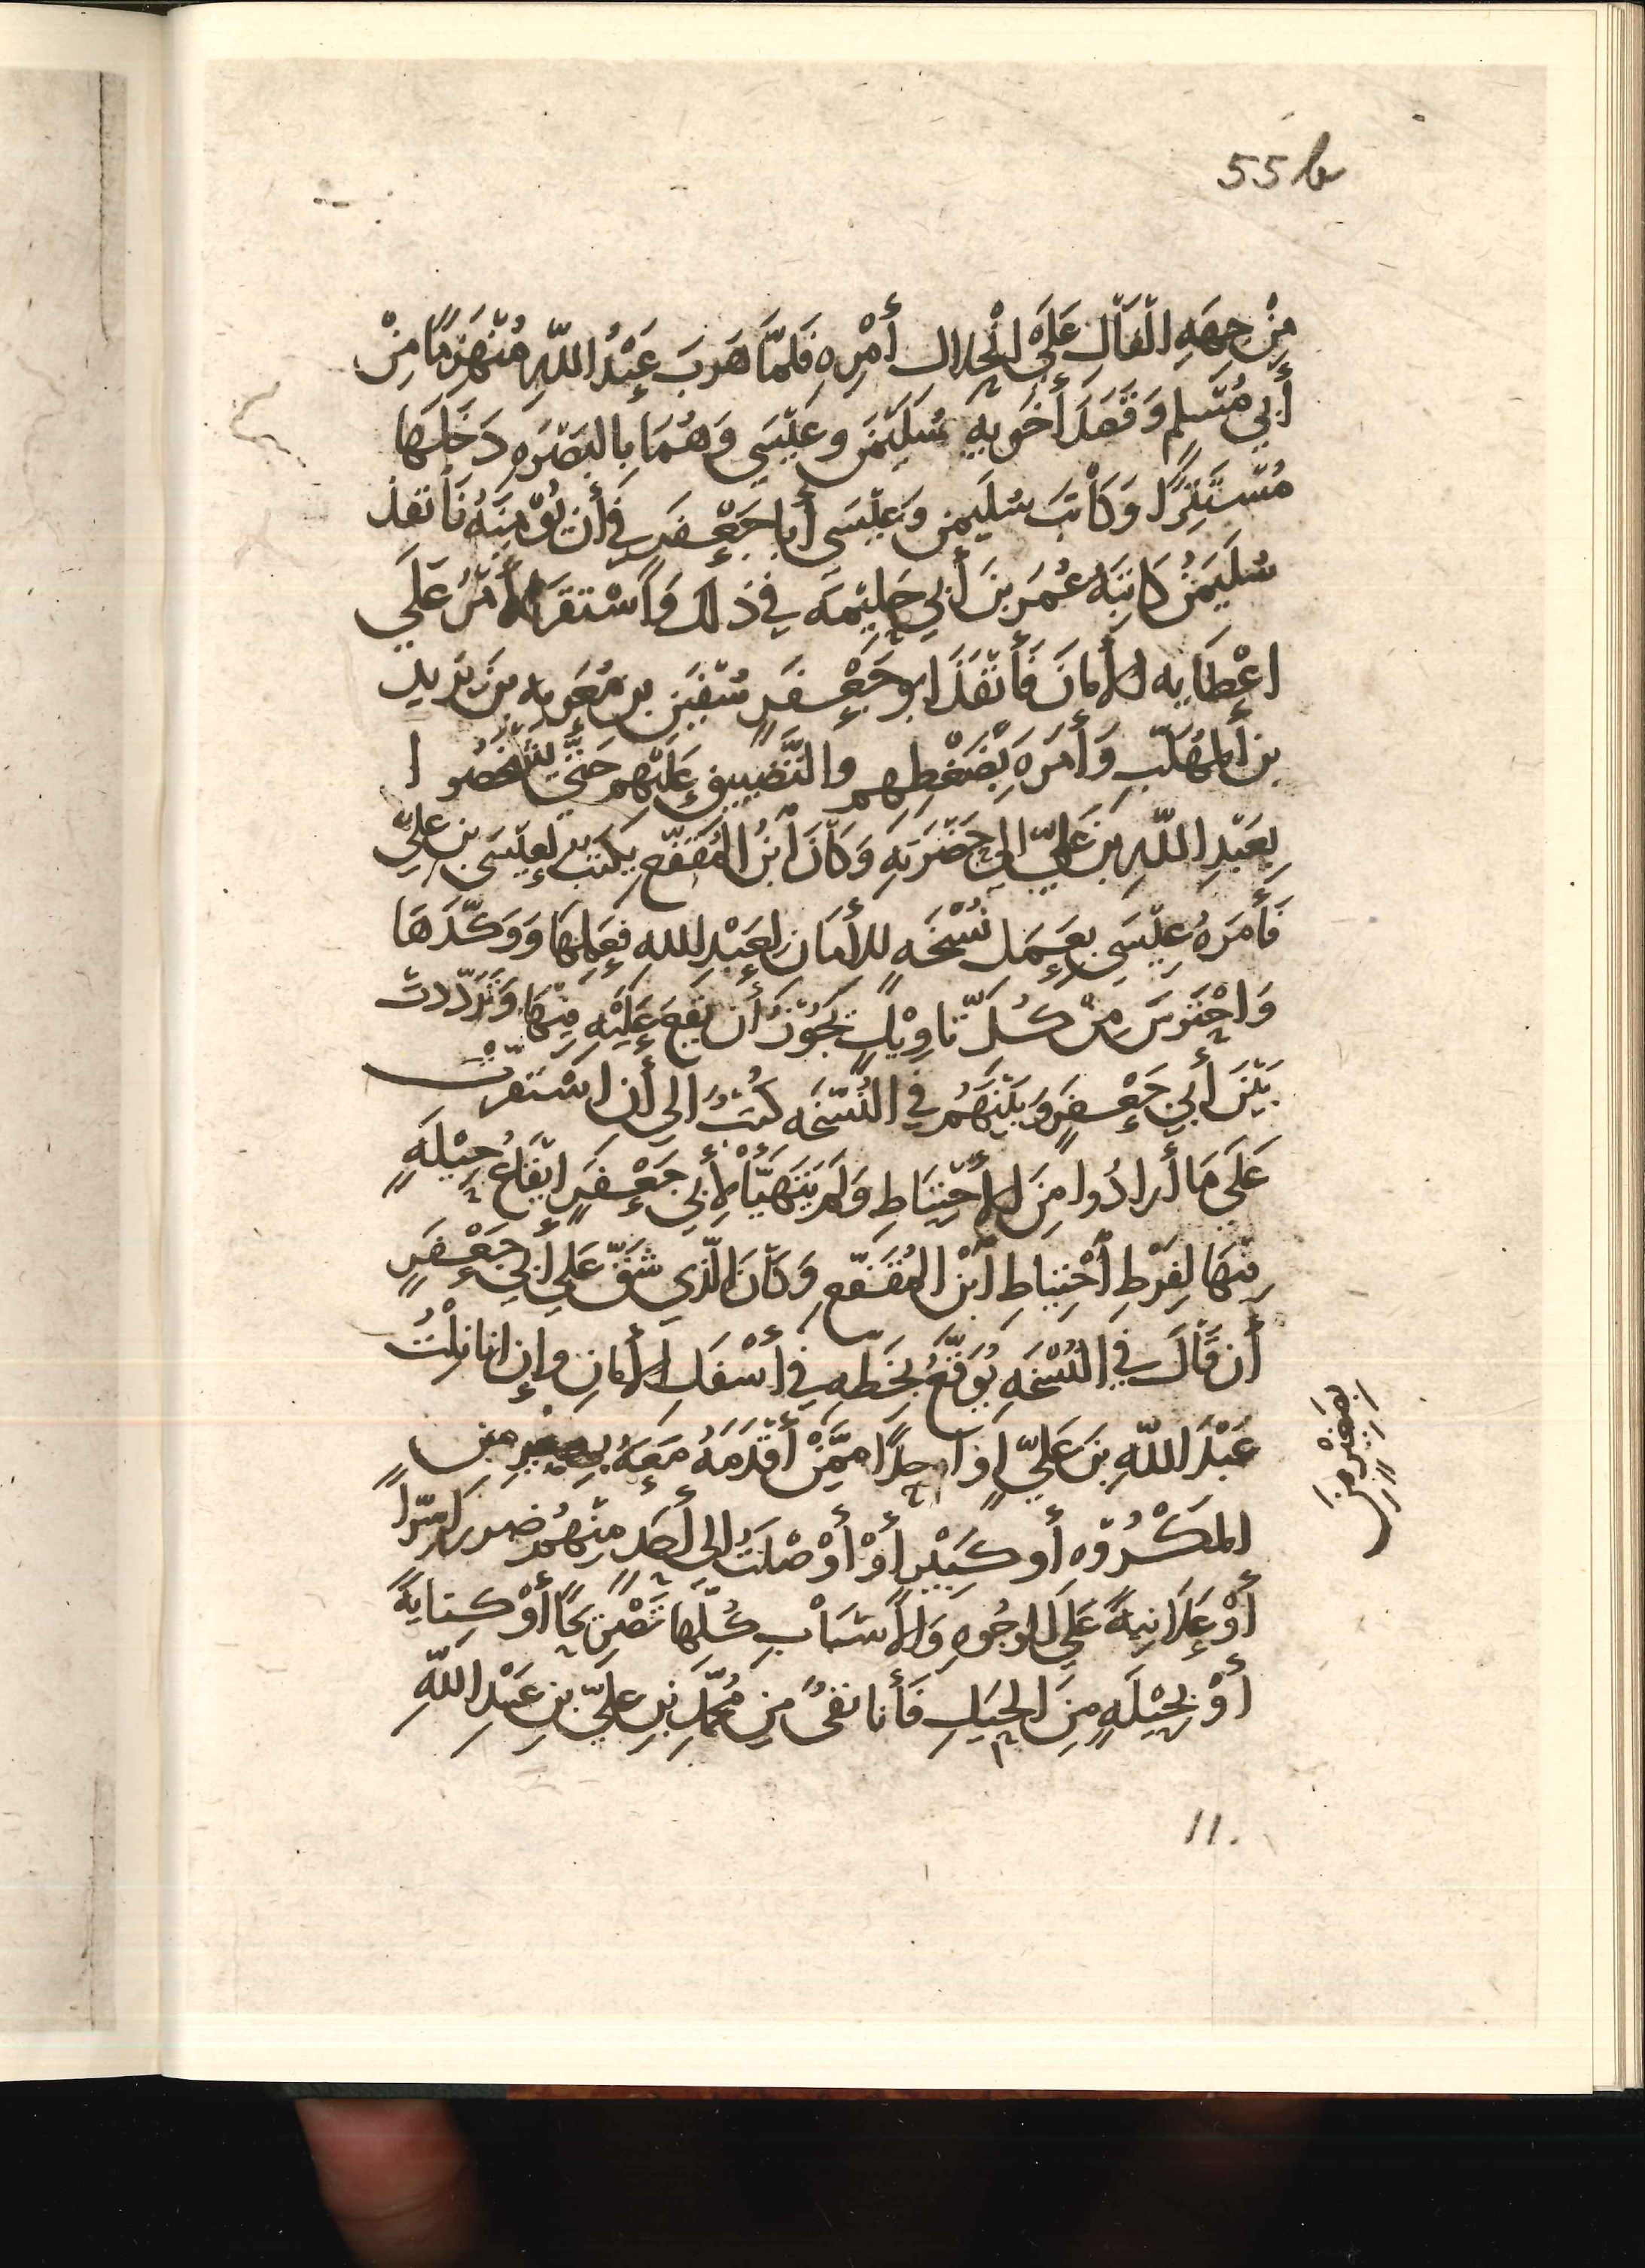 55b
مِنْ جِهَهِ الْفَالِ عَلَى انْحِلال أَمْرِهِ فَلَمَّا هَرَبَ عَبْدُ اللّهِ مُنْهَزِمًا مِنْ
أَبِي مُسْلِمٍ وَقَصَدَ أَخَوَيهِ سُلَيْمَنَ وعِيْسَى وَهُمَا بِالبَصْرَهِ دَخَلَهَا
مُسْتَتِرًا وَكَاتَبَ سُلَيمنُ وَعِيْسَى أَبا جَعْفَرٍ فِي أَن يُؤمِنَهُ فَأَنفَذَ
سُلَيْمَنُ كَاتِبَهُ عُمَرَ بنَ أَبِي حَلِيْمَه في ذلك وَاسْتقَرَّ الأَمْرُ عَلَى
اعْطَايه الأَمانَ فَأَنْفَذَ ابو جَعْفَرٍ سُفْيَنَ بن مُعَوِيه بن يَزيد
بن المُهَلَّبِ وَأَمَرَهُ بِضَغْطِهِم والتَّضْيِيقِ عَلَيْهِم حَتَّى يُشْخِصُوا
بِعَبْدِ اللّهِ بنِ عَليّ الى حَضْرَتِهِ وَكَانَ ابْنُ المُقَفَّعِ يكتب لِعِيْسَى بن عليّ
فَأَمَرَهُ عِيْسَى بعَمَل نُسْخَهٍ للأَمَانِ لِعَبْدِ الله فَعَمِلَهَا وَوَكَّدَهَا
وَاحْتَرَسَ مِنْ كُلِّ تَاوِيْلٍ يَجُوْزُ أَن يَقَعَ عَلَيْهِ فِيْهَا وَتَرَدّدتْ
بَيْنَ أَبِي جَعْفَرٍ وَبَيْنَهُمْ في النُسْخَه كُتُبٌ الى أَن اسْتَقرّتْ
عَلَى مَا أَرادُوا مِنَ الاحْتِيَاطِ وَلَم يَتَهَيَّأْ لأَبِي جَعْفَرٍ ايْقَاعُ حِيْلَهٍ
فِيْهَا لِفَرْطِ احْتِيَاطِ ابْنِ المُقَفَّعِ وَكَانَ الّذِي شَقَّ عَلَى أَبِي جَعْفَرٍ
أَن قَالَ فِي النُسْخَهِ يُوَقّعُ بِخَطّهِ فِي أَسْفَلِ الأَمانِ وإِن انا نِلْتُ
عَبْدَ اللّهِ بنَ عَليٍّ او احِدًا مِمَّنْ أَقْدَمَهُ مَعَهُ بِصَغِيرٍ مِن
بصَغِيْرٍ مِن
المَكْرُوْهِ أو كَبِيْرٍ أَوْ أَوْصَلْتُ الى أَحَدٍ مِنْهُمْ ضررا سِرّاً
أَوْ عَلَانِيَهً عَلَى الوجُوهِ وَالأَسْبَابِ كُلّهَا تَصْرِيْحًا أَوْ كِنايةً
أَوْ بِحِيْلَهٍ مِنَ الحِيَلِ فَأَنا نفيٌ مِن مُحَمّدِ بْنِ عَلِيّ بنِ عَبْدِ اللّهِ
11.